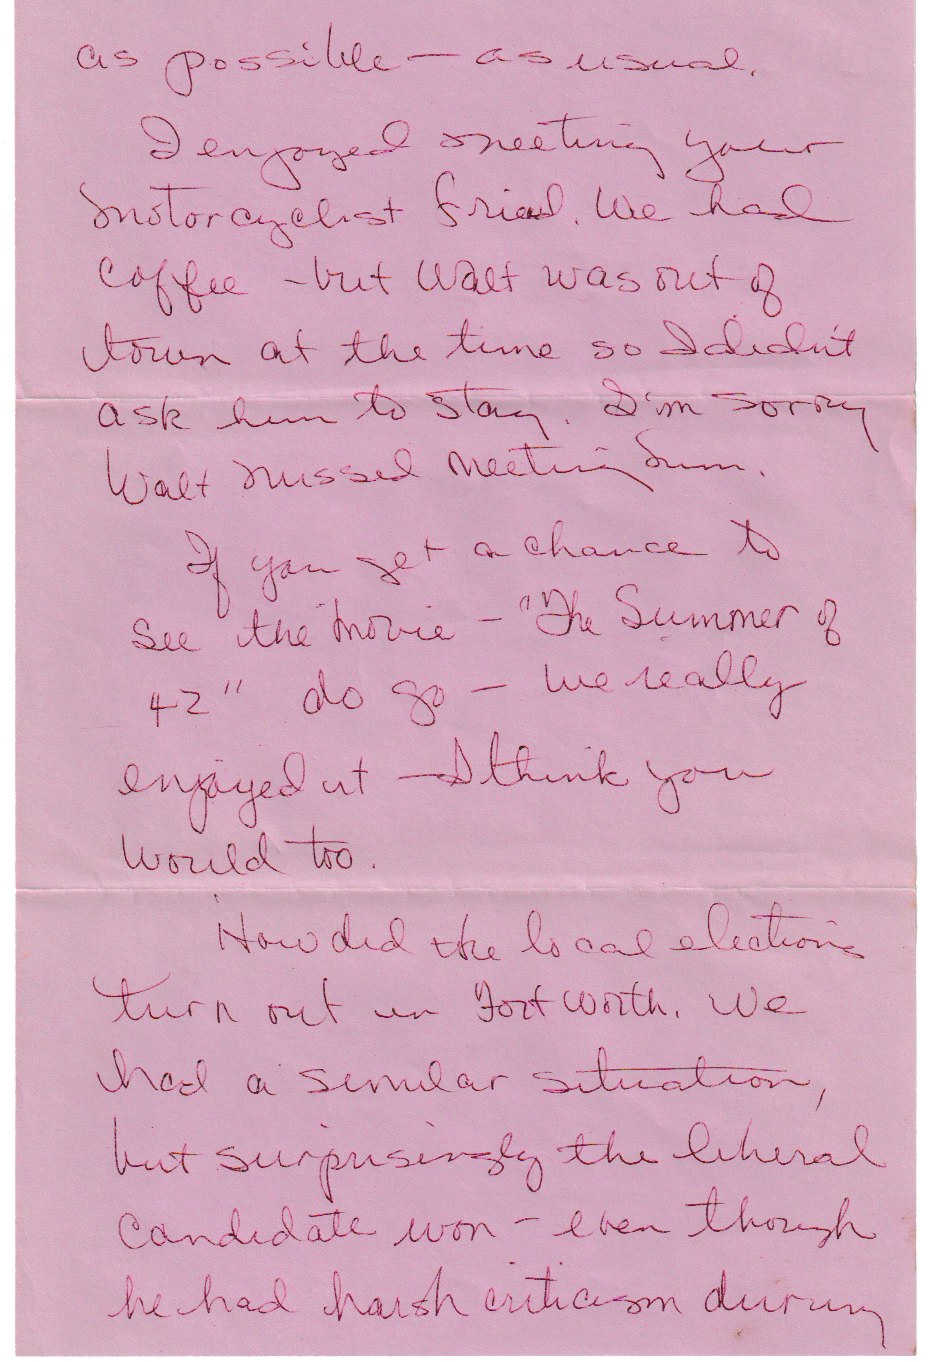 as possible — as usual.
I enjoyed meeting your
motorcyclist friend. We had
coffee - but Walt was out of
town at the time so I didn't
ask him to stay. I'm sorry
Walt missed meeting him.
If you get a chance to
see the movie - "The Summer of
42" do go - we really
enjoyed it — I think you
would too.
How did the local elections
turn out in Fort Worth. We
had a similar situation,
but surprisingly the liberal
candidate won - even though
he had harsh criticism during